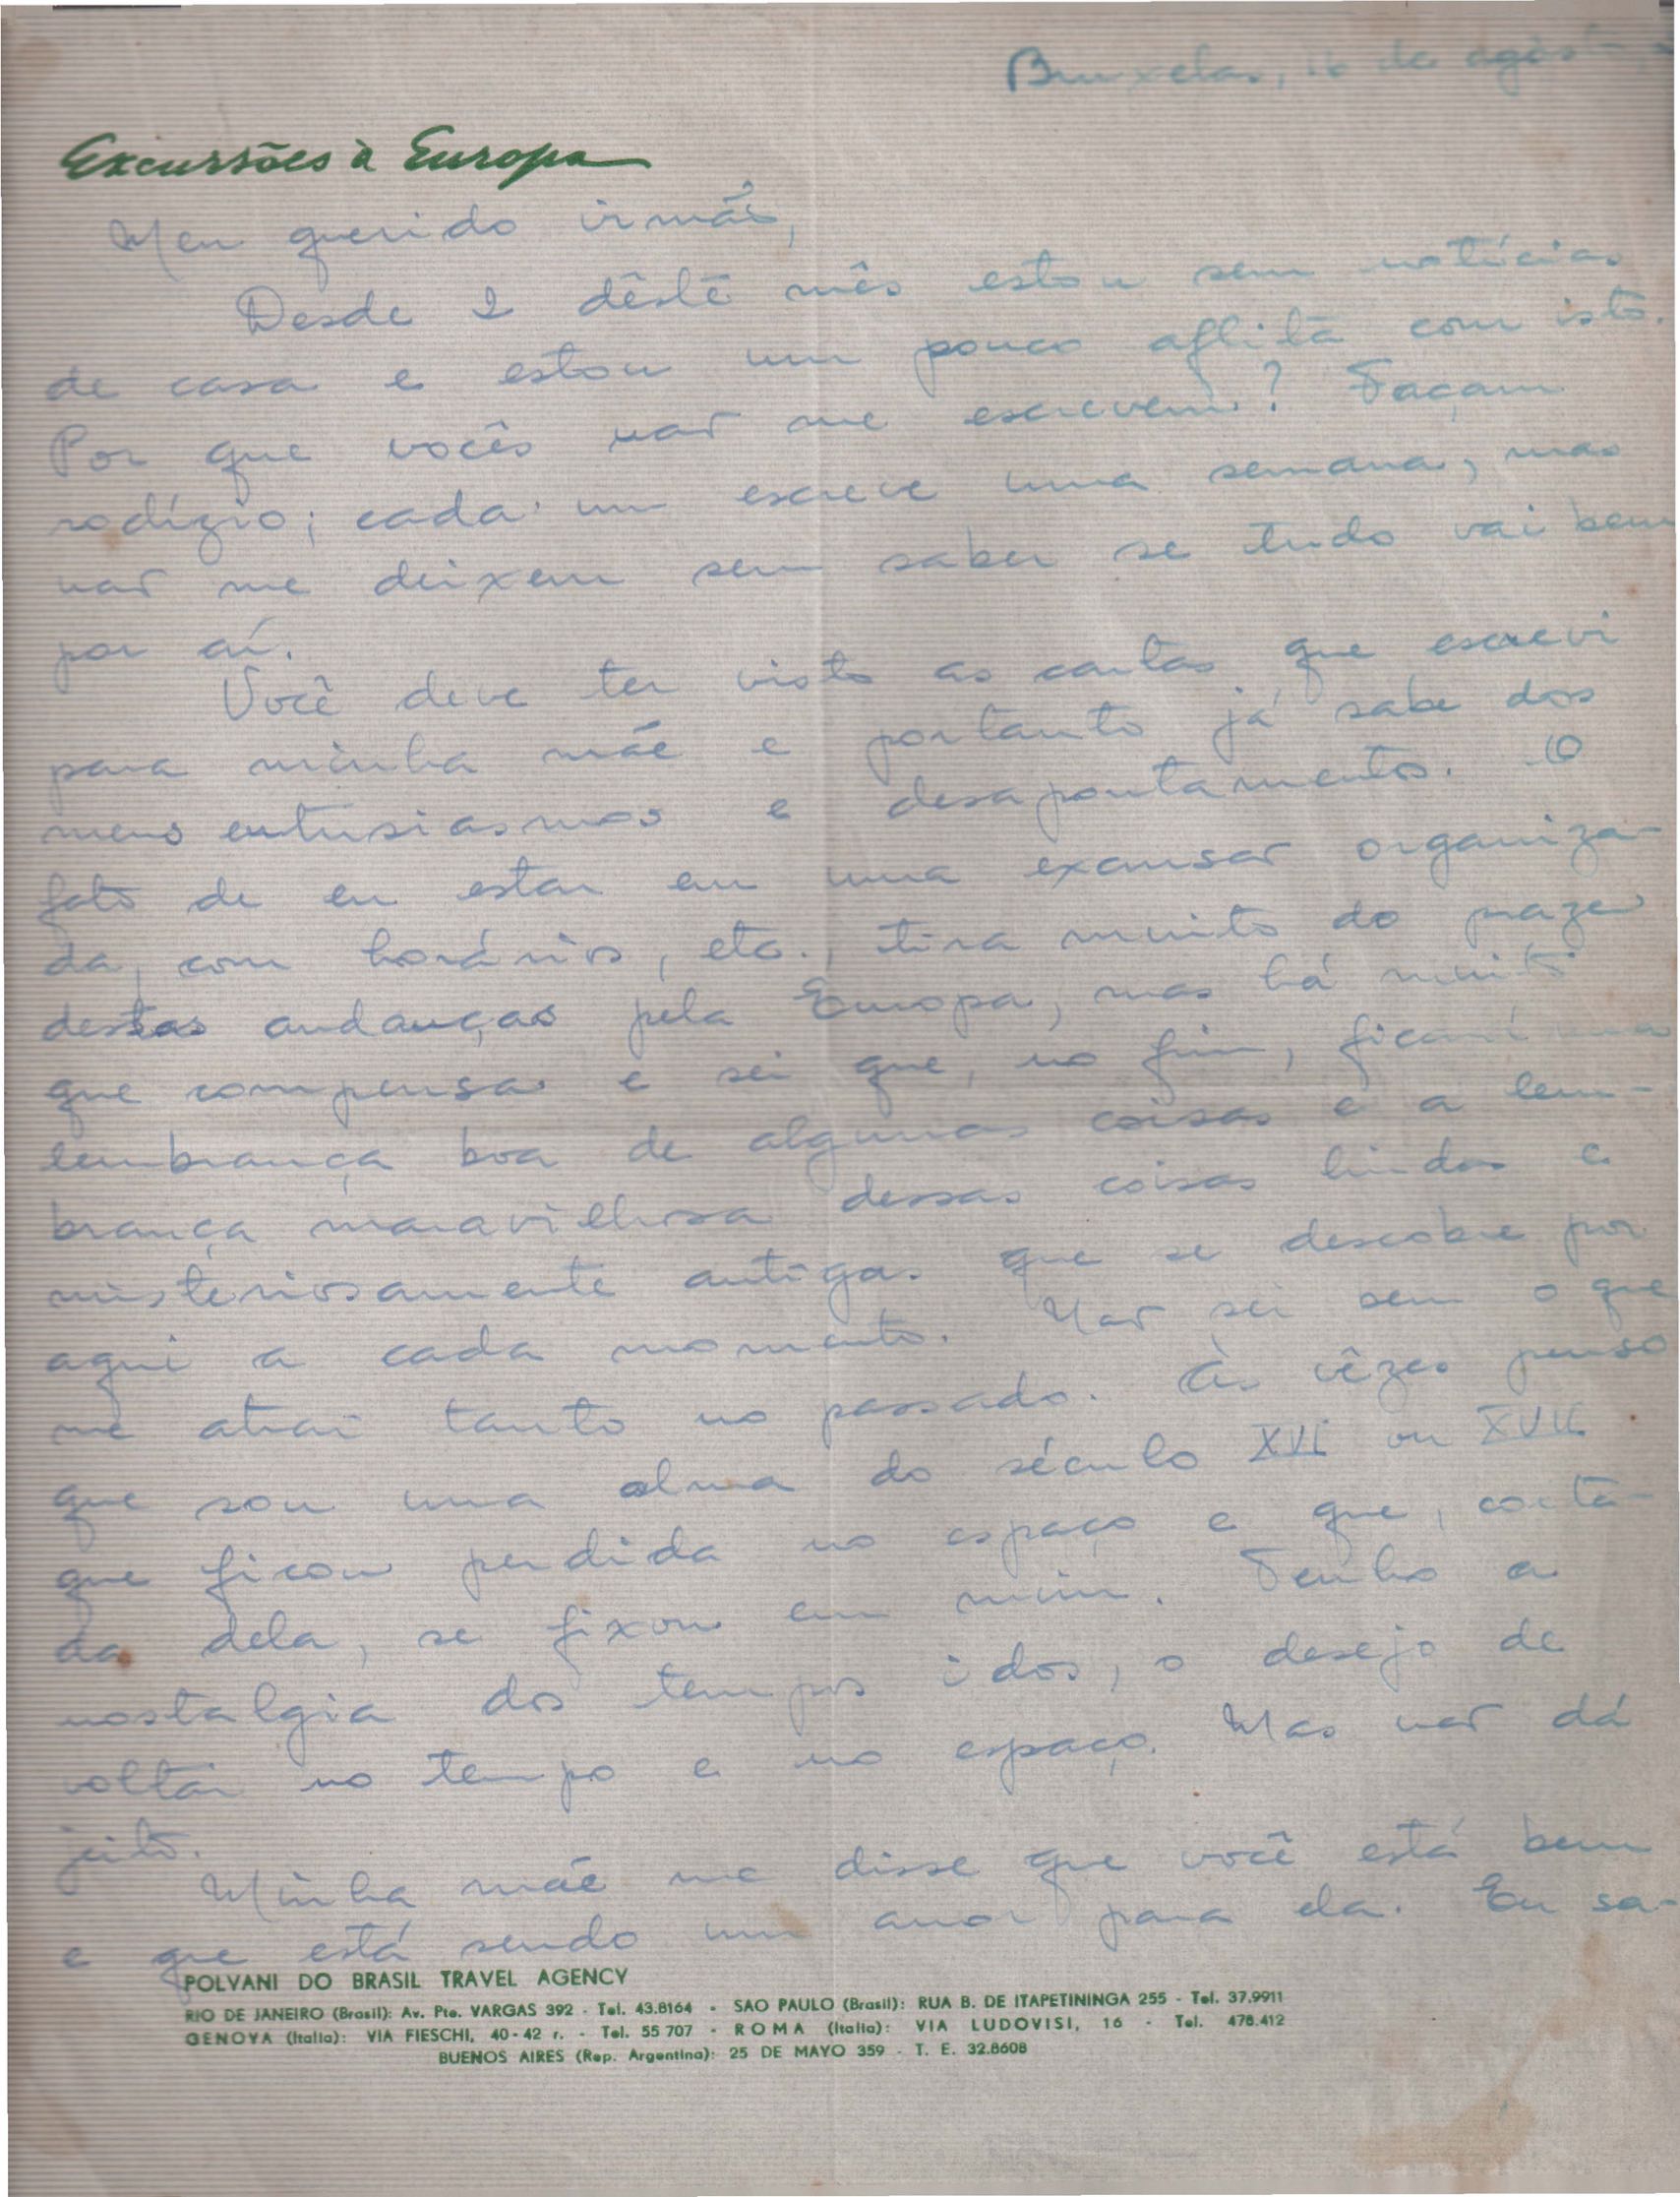 Bruxelas, 16 de agôsto
Excursões à Europa
Meu querido irmão,
Desde 2 dêste mês estou sem notícias
de casa e estou um pouco aflita com isto.
Por que vocês não me escrevem? Façam
rodízio; cada um escreve uma semana, mas
não me deixem sem saber se tudo vai bem
por aí.
Você deve ter visto as cartas que escrevi
para minha mãe e portanto já sabe dos
meus entusiasmos e desapontamentos. O
fato de eu estar em uma excursão organiza-
da, com horários, etc., tira muito do prazer
destas andanças pela Europa, mas há muito
que compensa e sei que, no fim, ficará uma
lembrança boa de algumas coisas e a lem-
brança maravilhosa dessas coisas lindas e
misteriosamente antigas que se descobre por
aqui a cada momento. Não sei bem o que
me atrai tanto no passado. Às vêzes penso
que sou uma alma do século XVI ou XVII
que ficou perdida no espaço e que, coita-
da dela, se fixou em mim. Tenho a
nostalgia dos tempos idos, o desejo de
voltar no tempo e no espaço. Mas não dá
jeito.
Minha mãe me disse que você está bem
e que está sendo um amor para ela. Eu sa-
POLVANI DO BRASIL TRAVEL AGENCY
RIO DE JANEIRO (Brasil): Av. Pte. VARGAS 392 - Tel. 43.8164 - SAO PAULO (Brasil): RUA B. DE ITAPETININGA 255 - Tel. 37.9911
GENOVA (Italia): VIA FIESCHI, 40-42 r. - Tel. 55 707 - ROMA (Italia): VIA LUDOVISI, 16 - Tel. 478.412
BUENOS AIRES (Rep. Argentina): 25 DE MAYO 359 - T. E. 32.8608